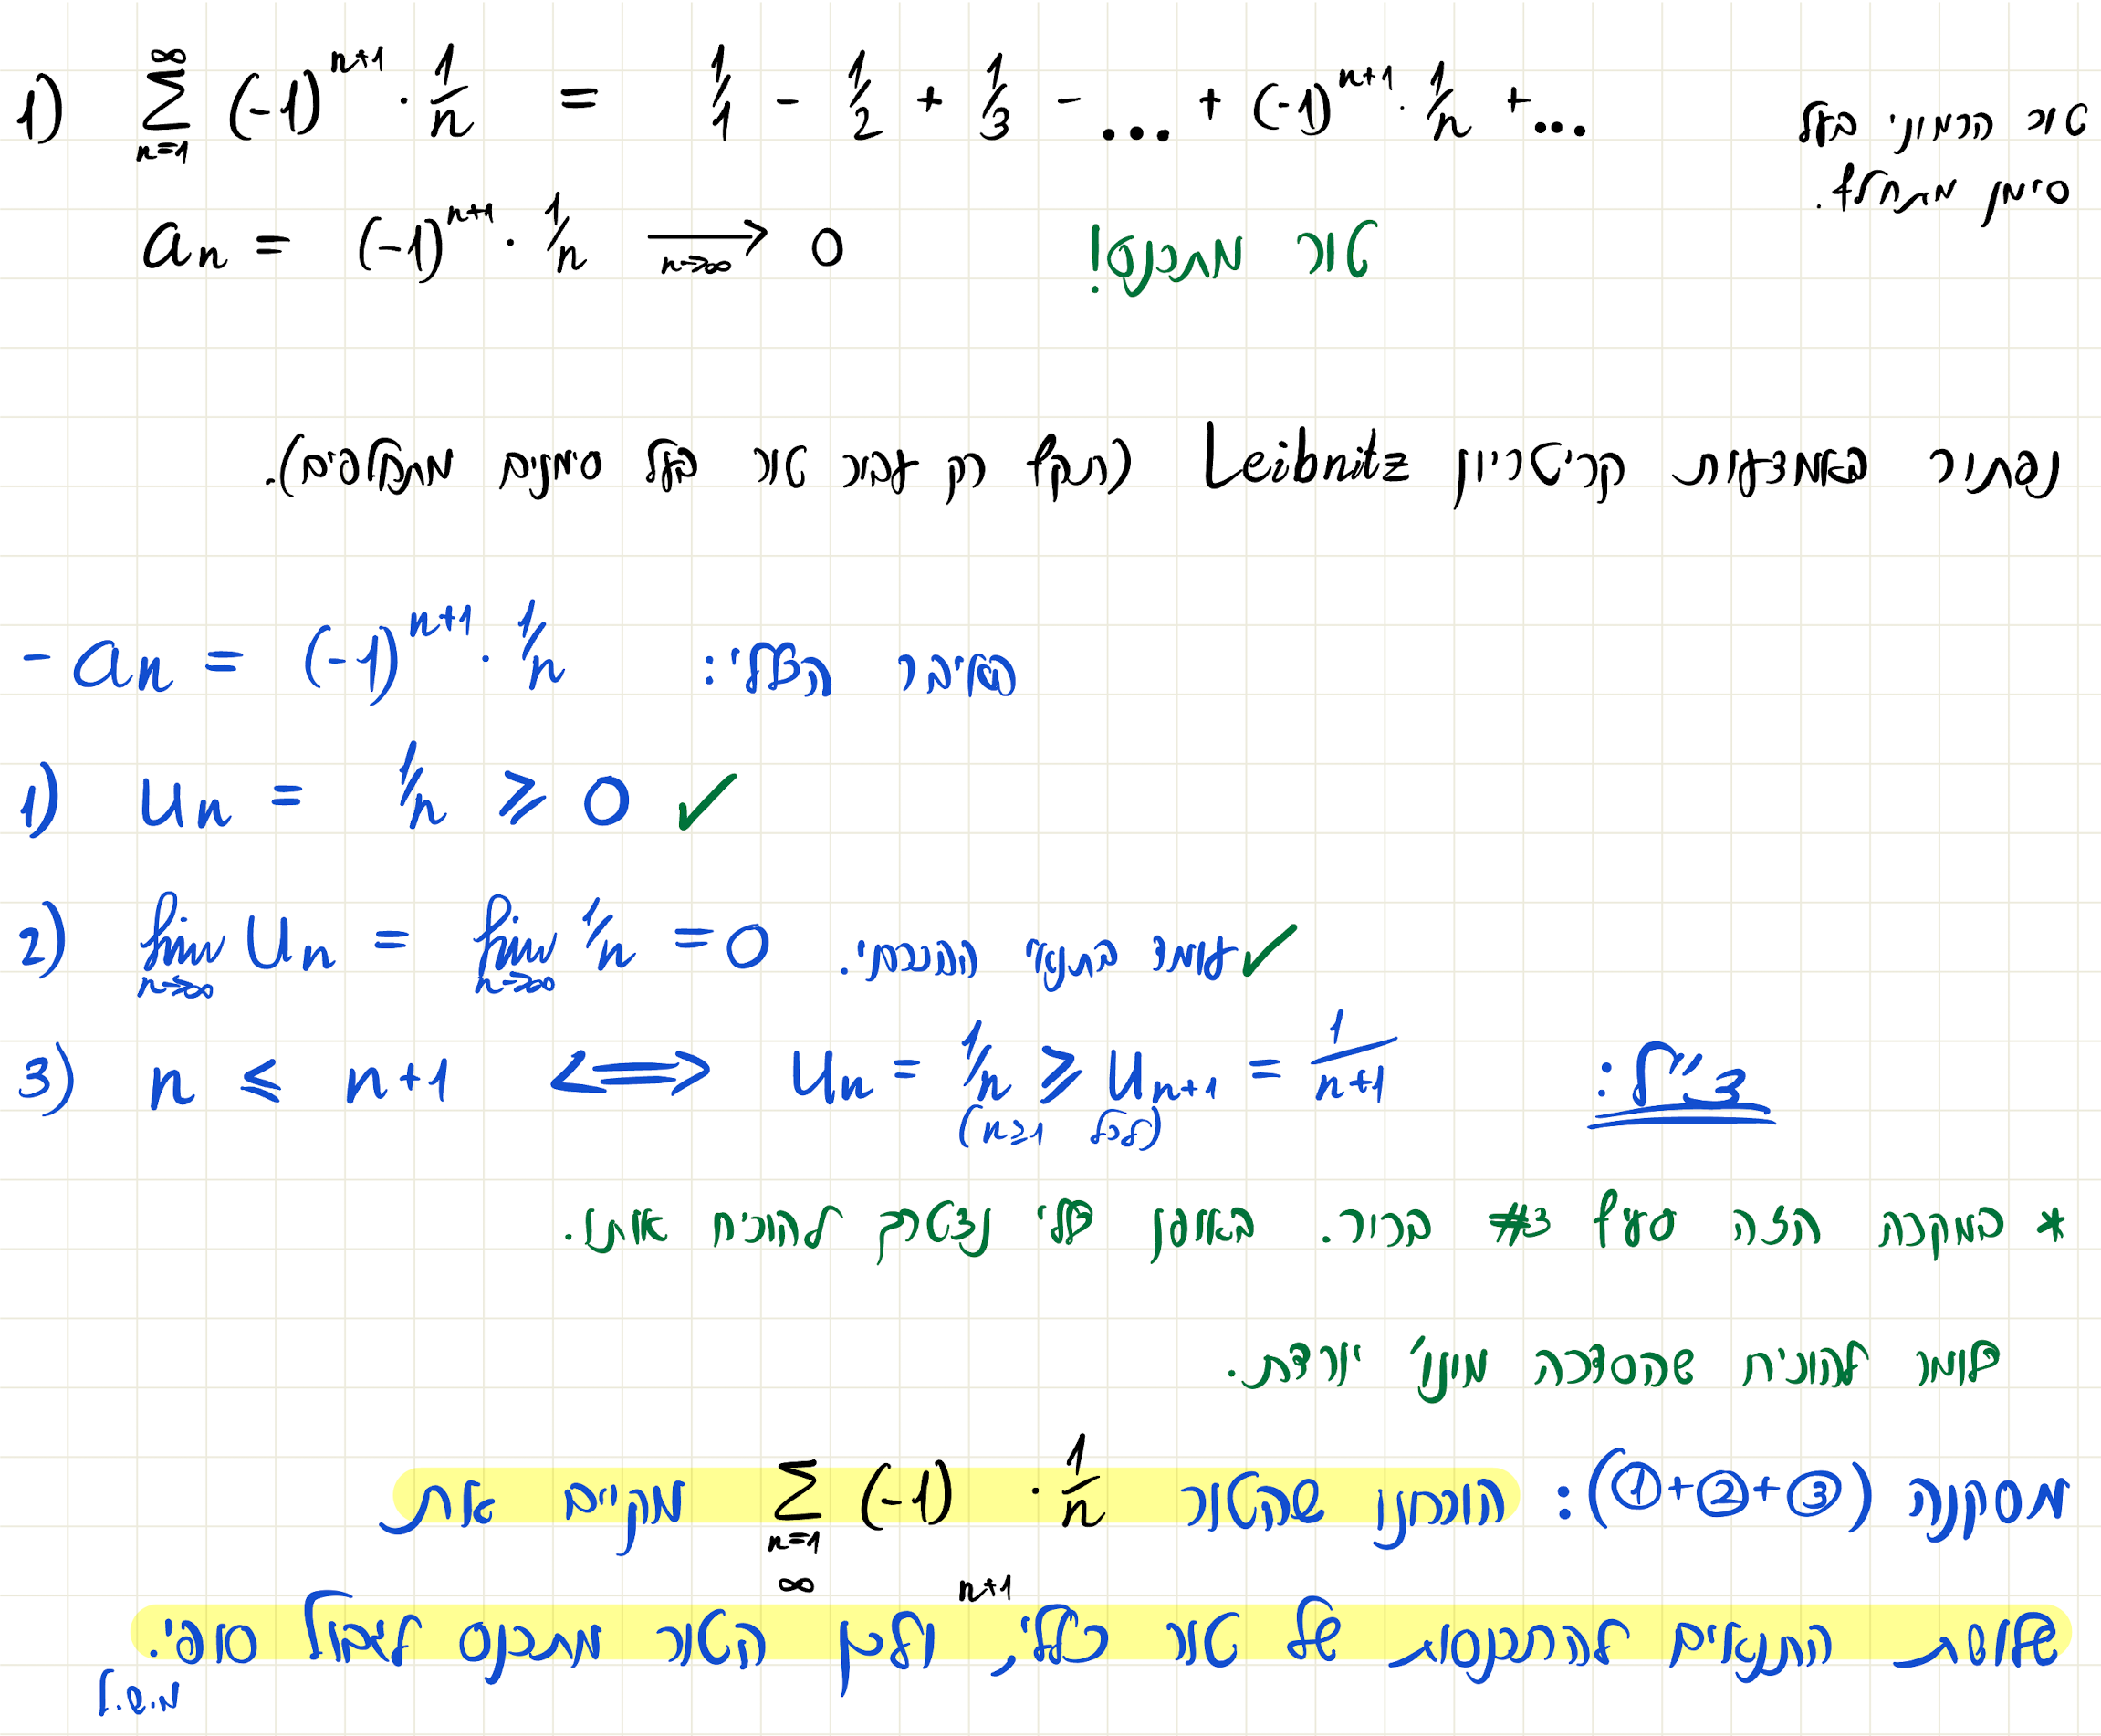 1) ∑_{n=1}^{∞} (-1)^{n+1} · 1/n = 1/1 - 1/2 + 1/3 - ... + (-1)^{n+1} · 1/n + ... טור הרמוני בעל
סימן מתחלף.
a_n = (-1)^{n+1} · 1/n ⟶_{n→∞} 0 טור מתכנס!
נפתור באמצעות קריטריון Leibnitz (תקף רק עבור טור בעל סימנים מתחלפים).
- a_n = (-1)^{n+1} · 1/n האיבר הכללי:
1) u_n = 1/n ≥ 0 ✓
2) lim_{n→∞} u_n = lim_{n→∞} 1/n = 0 עומד בתנאי ההכרחי. ✓
3) n ≤ n+1 ⟺ u_n = 1/n ≥ u_{n+1} = 1/(n+1) צ"ל:
(לכל n≥1)
* במקרה הזה סעיף #3 ברור. באופן כללי נצטרך להוכיח אותו.
כלומר להוכיח שהסדרה מונו' יורדת.
מסקנה (①+②+③): הוכחנו שהטור ∑_{n=1} (-1) · 1/n מקיים את
∞ n+1
שלושת התנאים להתכנסות של טור כללי, ולכן הטור מתכנס לגבול סופי.
מ.ש.ל